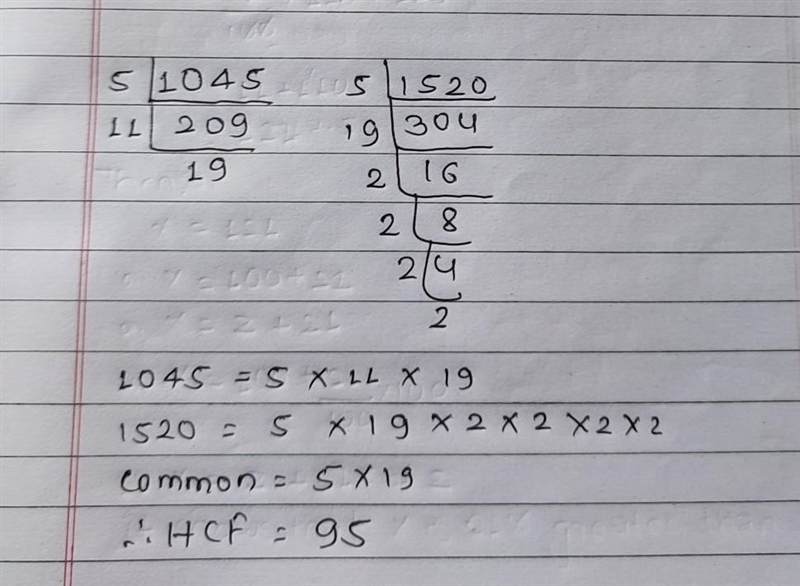 5 1045 5 1520
11 209 19 304
19 2 16
2 8
2 4
2
1045 = 5 × 11 × 19
1520 = 5 × 19 × 2 × 2 × 2 × 2
common = 5 × 19
∴ HCF = 95